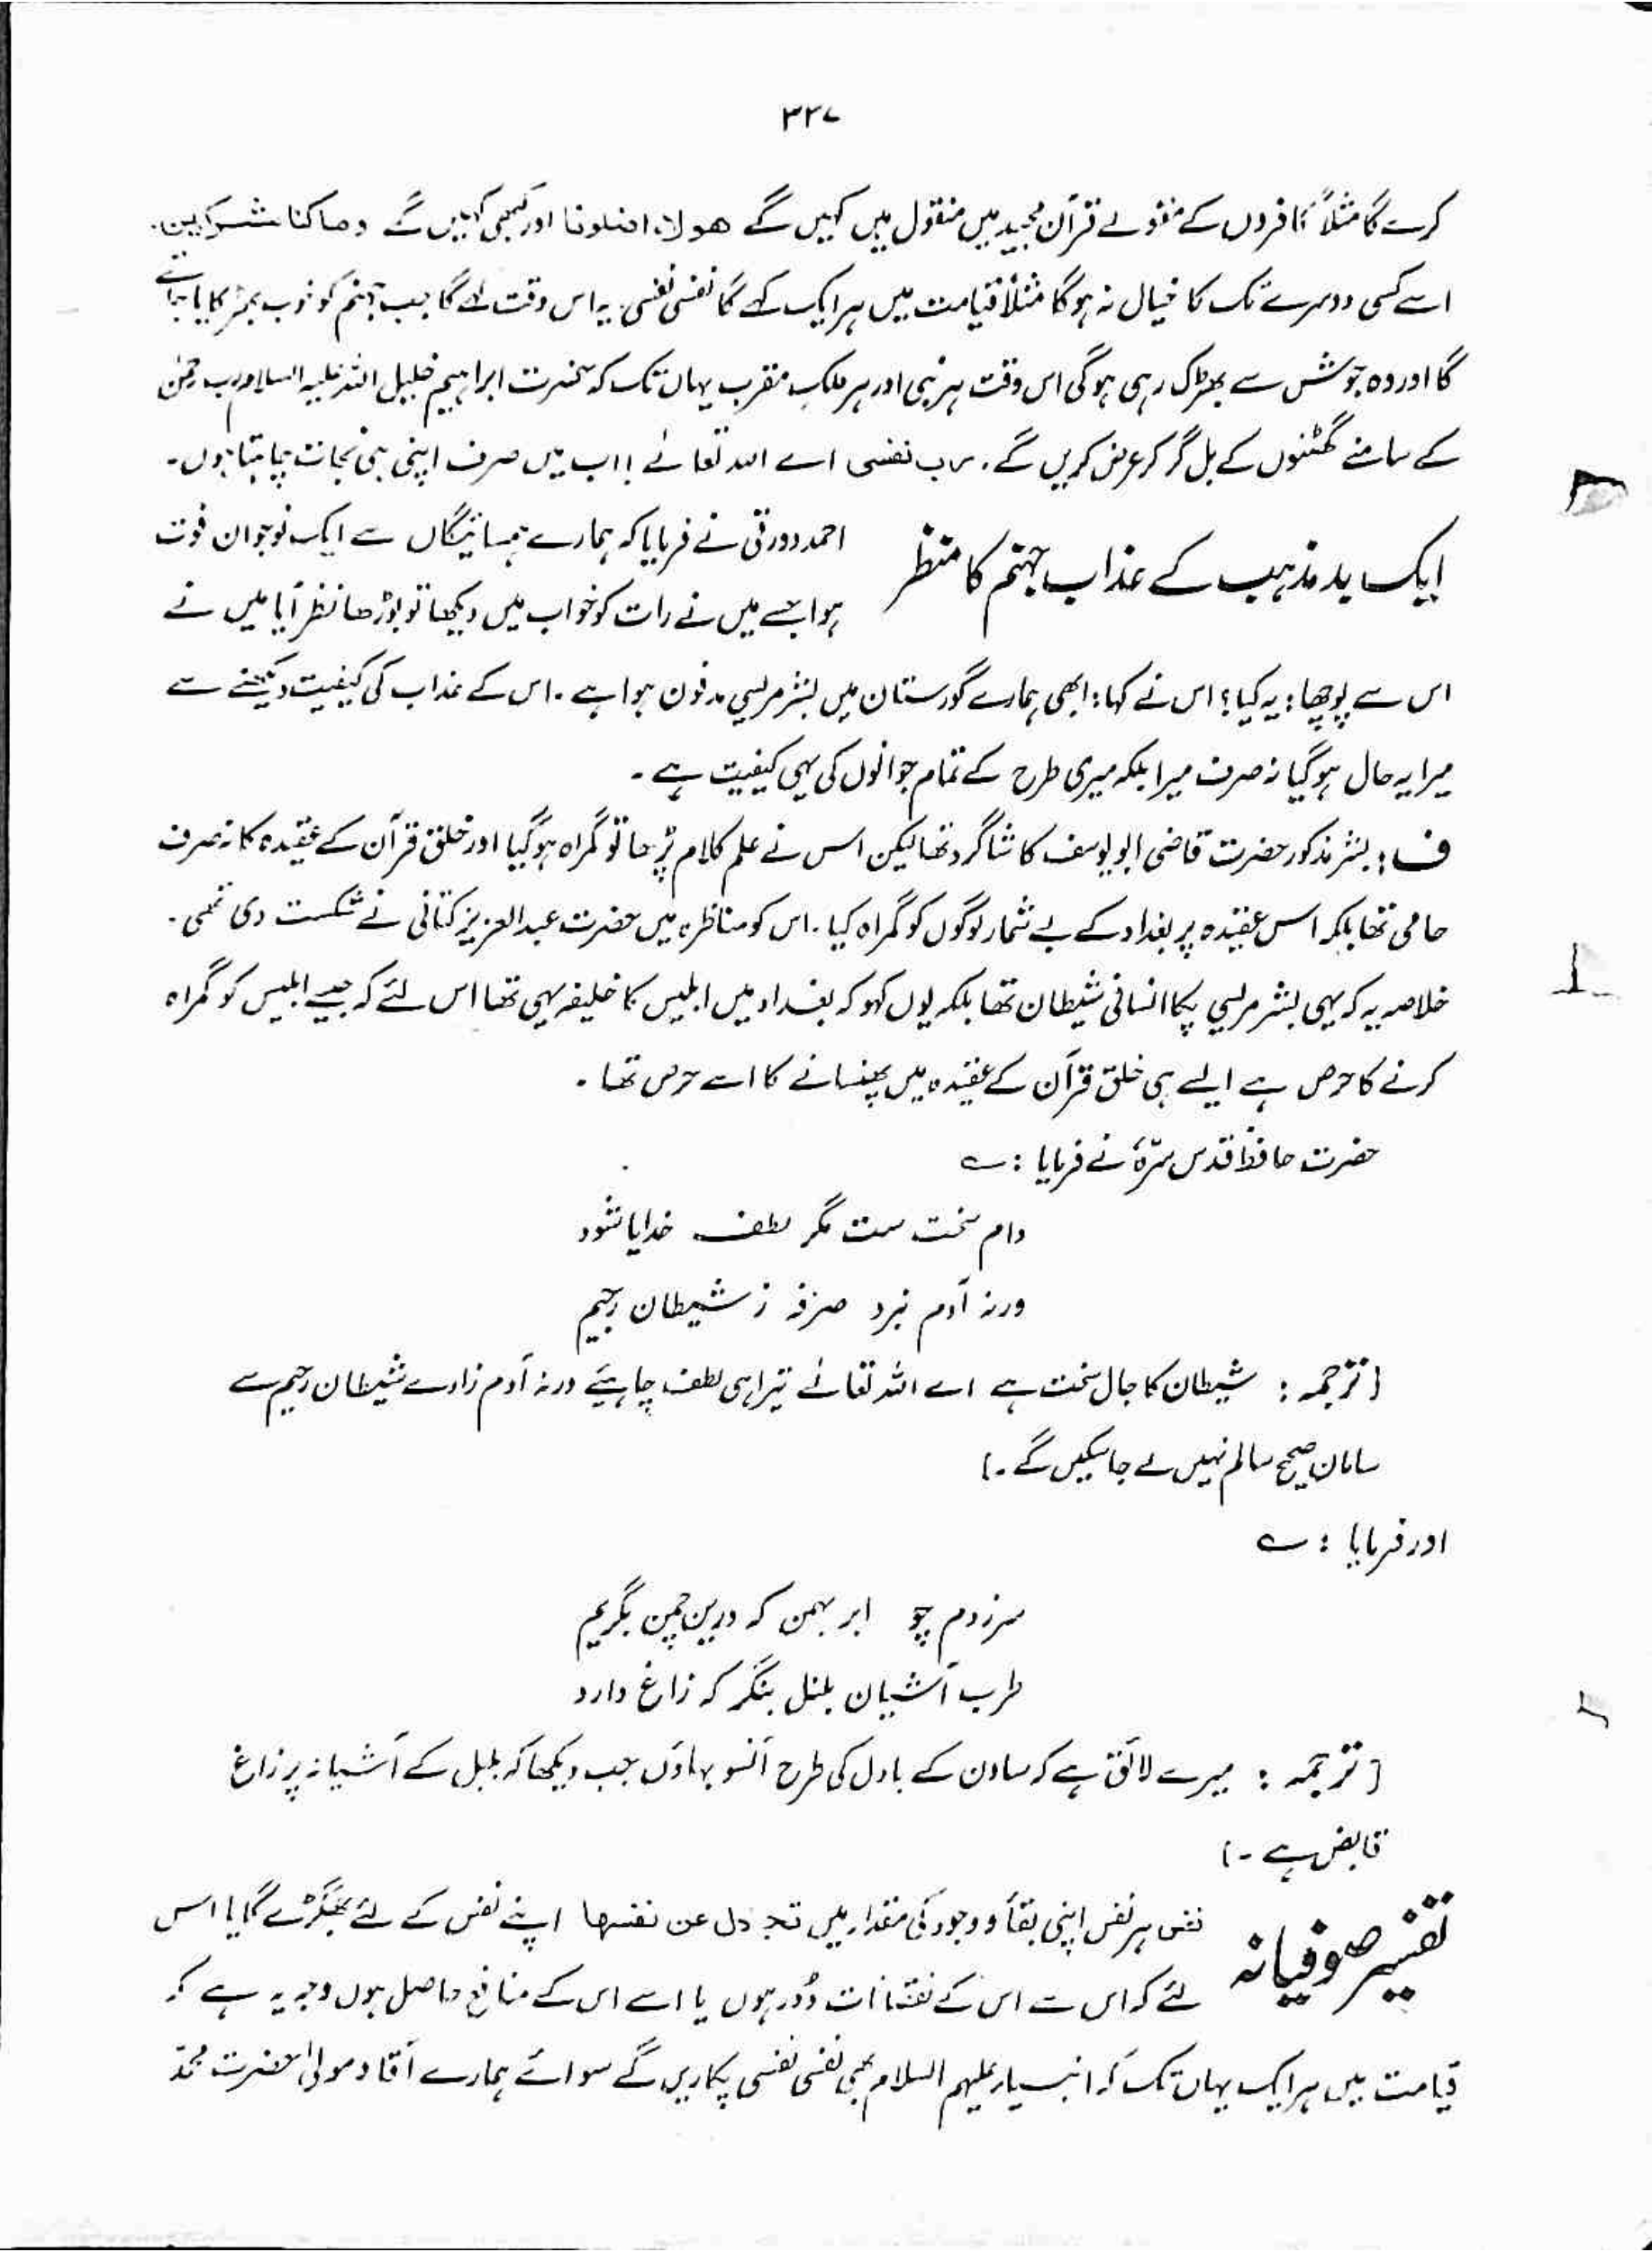 ۳۲۷
کرے گا مثلاً کافروں کے مقولے قرآن مجید میں منقول ہیں کہیں گے ھولاء اضلونا اور کبھی کہیں گے وما کنا مشرکین۔
اسے کسی دوسرے تک کا خیال نہ ہوگا مثلاً قیامت میں ہر ایک کہے گا نفسی نفسی۔ یہ اس وقت کہے گا جب جہنم کو خوب بھڑکایا جائے
گا اور وہ جوش سے بھڑک رہی ہوگی اس وقت ہر نبی اور ہر ملک مقرب یہاں تک کہ حضرت ابراہیم خلیل اللہ علیہ السلام رب رحمٰن
کے سامنے گھٹنوں کے بل گر کر عرض کریں گے۔ رب نفسی اے اللہ تعالٰے! اب میں صرف اپنی ہی نجات چاہتا ہوں۔
ایک بد مذہب کے عذاب جہنم کا منظر
احمد دورقی نے فرمایا کہ ہمارے ہمسائیگاں سے ایک نوجوان فوت
ہوا جسے میں نے رات کو خواب میں دیکھا تو بوڑھا نظر آیا میں نے
اس سے پوچھا: یہ کیا؟ اس نے کہا: ابھی ہمارے گورستان میں بشر مریسی مدفون ہوا ہے۔ اس کے عذاب کی کیفیت دیکھنے سے
میرا یہ حال ہوگیا نہ صرف میرا بلکہ میری طرح کے تمام جوانوں کی یہی کیفیت ہے۔
ف: بشر مذکور حضرت قاضی ابو یوسف کا شاگرد تھا لیکن اس نے علم کلام پڑھا تو گمراہ ہوگیا اور خلق قرآن کے عقیدہ کا نہ صرف
حامی تھا بلکہ اس عقیدہ پر بغداد کے بے شمار لوگوں کو گمراہ کیا۔ اس کو مناظرہ میں حضرت عبدالعزیز کتانی نے شکست دی تھی۔
خلاصہ یہ کہ یہی بشر مریسی پکا انسانی شیطان تھا بلکہ یوں کہو کہ بغداد میں ابلیس کا خلیفہ یہی تھا اس لئے کہ جیسے ابلیس کو گمراہ
کرنے کا حرص ہے ایسے ہی خلق قرآن کے عقیدہ میں پھنسانے کا اسے حرص تھا۔
حضرت حافظ قدس سرہٗ نے فرمایا: ؎
دام سخت ست مگر لطف خدایا شود
ورنہ آدم نبرد صرفہ ز شیطان رجیم
[ترجمہ: شیطان کا جال سخت ہے اے اللہ تعالٰے تیرا ہی لطف چاہیئے ورنہ آدم زادے شیطان رجیم سے
سامان صحیح سالم نہیں لے جا سکیں گے۔]
اور فرمایا: ؎
سزدم چو ابر بہمن کہ دریں چمن بگریم
طرب آشیان بلبل بنگر کہ زاغ دارد
[ترجمہ: میرے لائق ہے کہ ساون کے بادل کی طرح آنسو بہاؤں جب دیکھا کہ بلبل کے آشیانہ پر زاغ
قابض ہے۔]
تفسیر صوفیانہ
نفس ہر نفس اپنی بقأ و وجود کی مقدار میں تجادل عن نفسھا اپنے نفس کے لئے جھگڑے گا یا اس
لئے کہ اس سے اس کے نقصانات دُور ہوں یا اسے اس کے منافع حاصل ہوں وجہ یہ ہے کہ
قیامت میں ہر ایک یہاں تک کہ انبیاء علیہم السلام بھی نفسی نفسی پکاریں گے سوائے ہمارے آقا و مولیٰ حضرت محمد